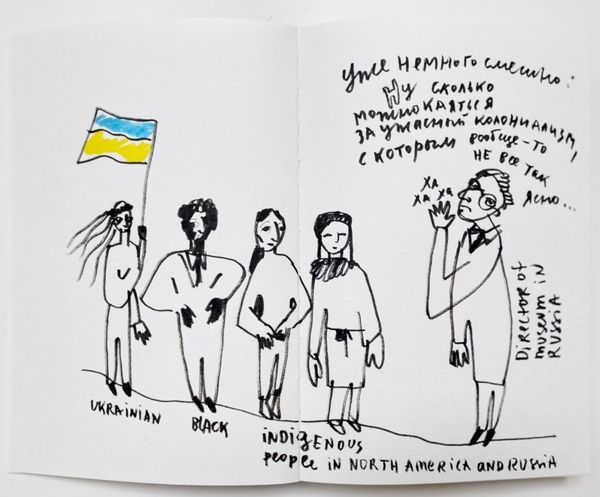 Уже немного смешно:
Ну сколько
можно каяться
за ужасный колониализм,
с которым вообще-то
не все так
ясно...
ха
ха ха
Director of
museum in
Russia
UKRAINIAN
BLACK
iNDiGENOUS
people iN NORTH AMERiCA AND RUSSiA